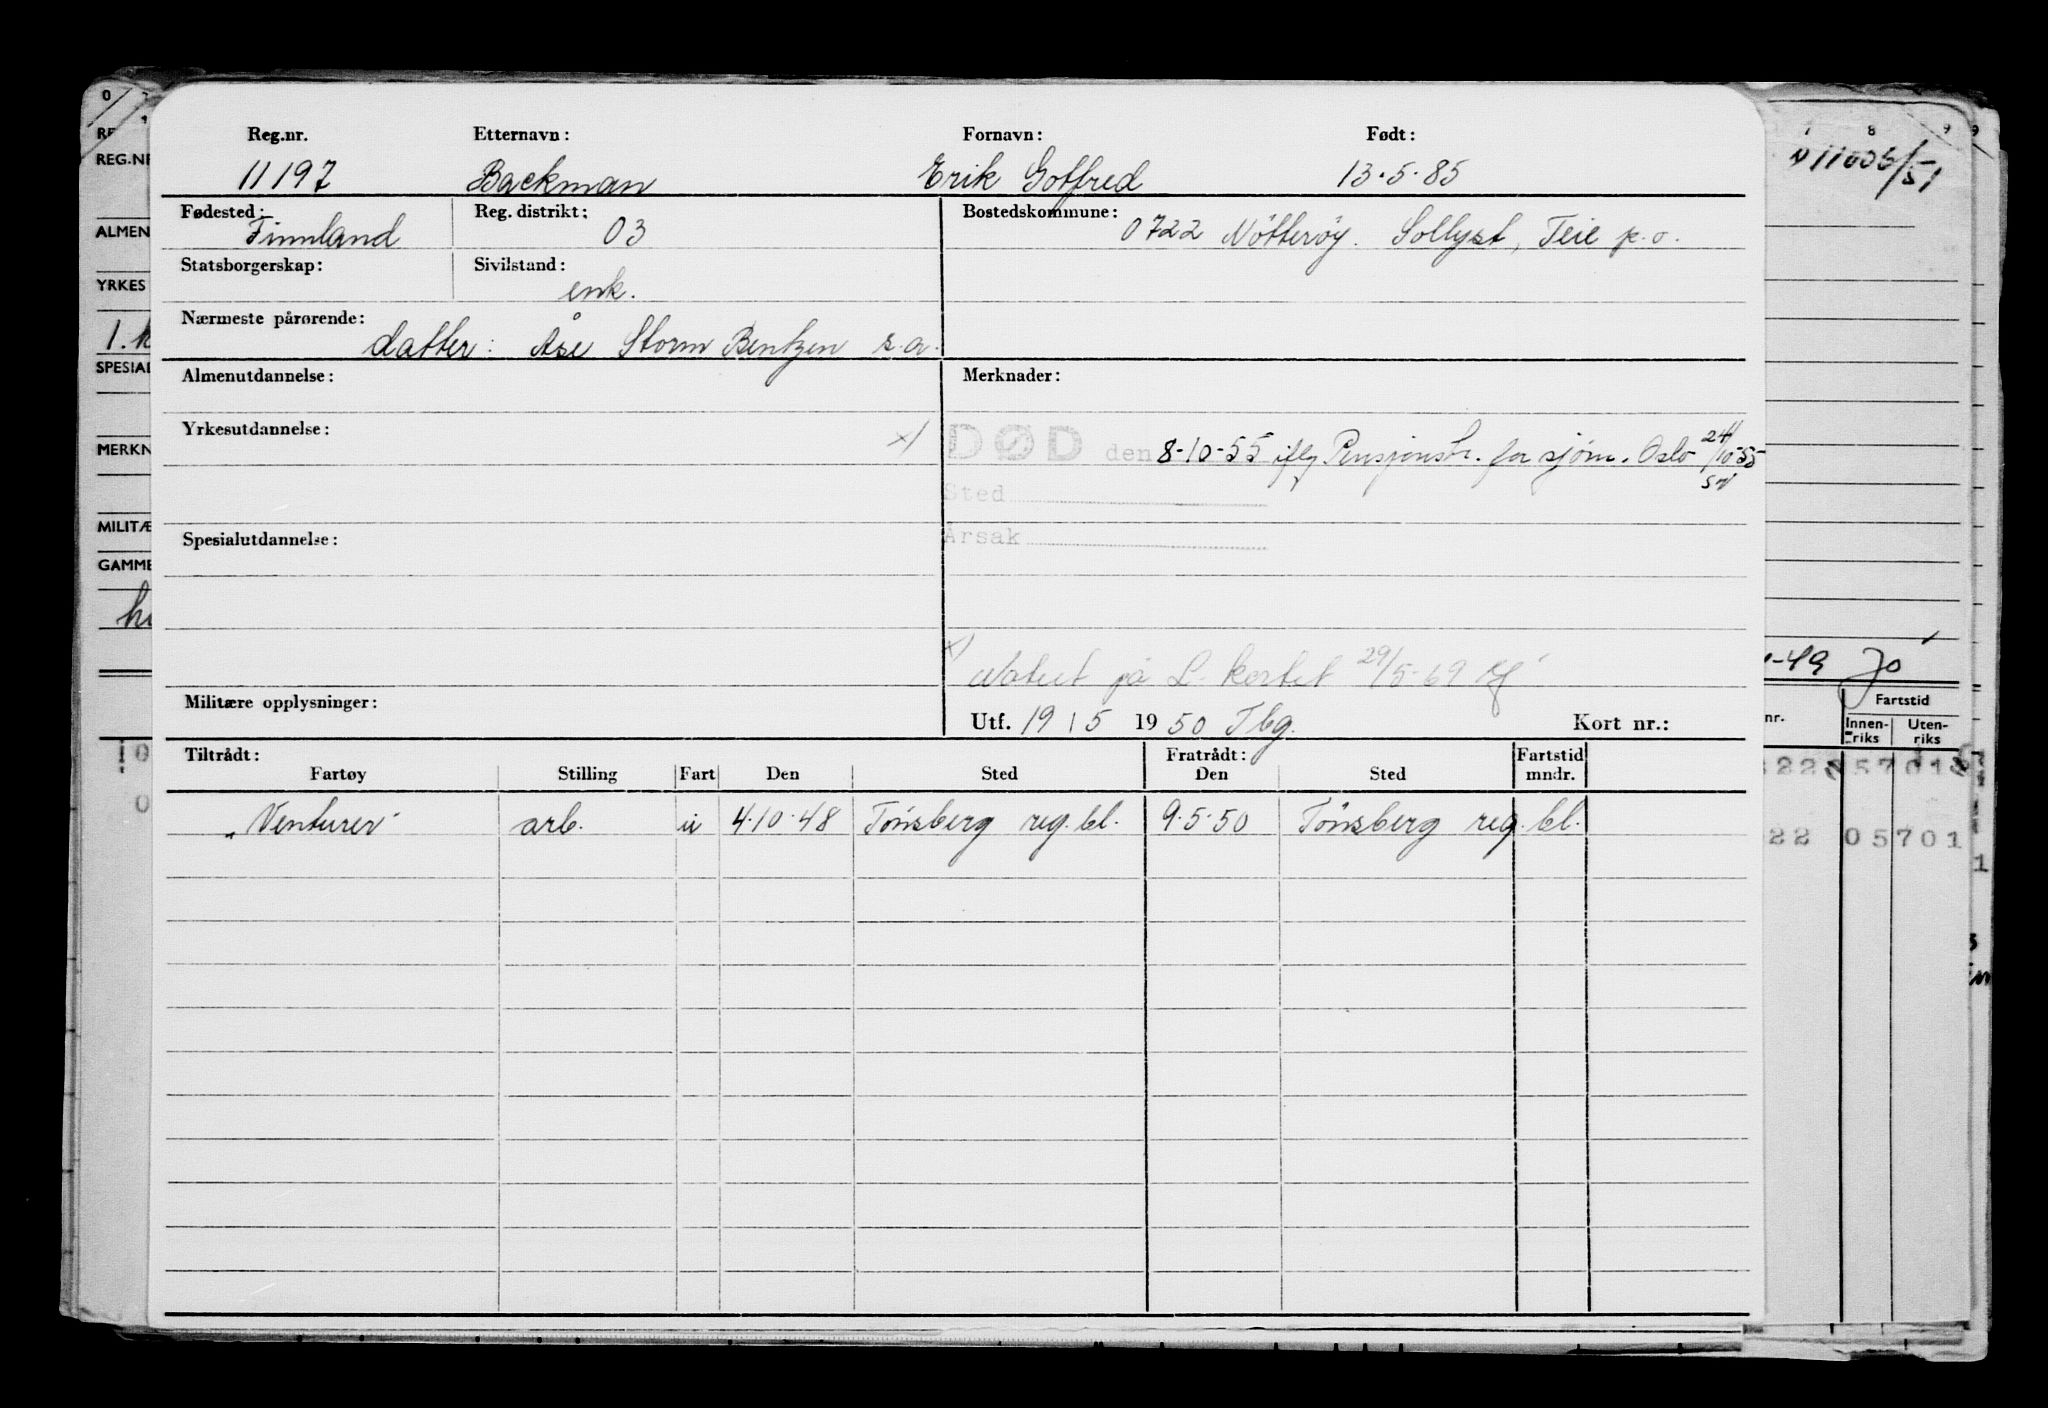 Reg.nr. Etternavn: Fornavn: Født:
11197 Backman Erik Gotfred 13.5.85
Fødested: Finnland Reg. distrikt: 03 Bostedskommune: 0722 Nötteröy. Sollyst, Teie p.o.
Statsborgerskap: Sivilstand: enk.
Nærmeste pårørende: datter: Åse Storm Bentzen s.a.
Almenutdannelse: Merknader:
Yrkesutdannelse: x) DØD den 8-10-55 iflg Pensjonstr. for sjøm. Oslo 24/10-55
Sted
Årsak
Spesialutdannelse:
x) Notert på L. kortet 29/5-69
Militære opplysninger: Utf. 19/5 1950 Tbg. Kort nr.:
Tiltrådt: Fratrådt: Fartstid
Fartøy Stilling Fart Den Sted Den Sted mndr.
"Venturer" arb. u 4.10.48 Tönsberg reg. bl. 9.5.50 Tönsberg reg. bl.
0
REG.NR
ALMEN
YRKES
SPESIAL
MERKN
MILITÆ
GAMME
10
0
7 8 9 9
-49 Jo
Fartstid
nr. Innen-riks Uten-riks
22 05701
1